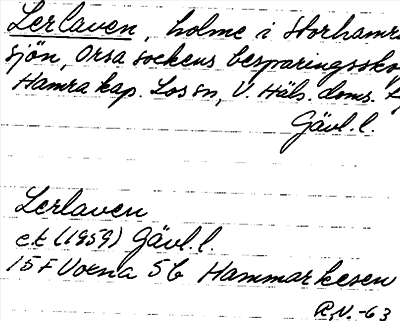 Lerlaven, holme i Storhamra
sjön, Orsa sockens besparingssko
Hamra kap. Los sn, V. Häls. doms.
Gävl. l.
Lerlaven
ek (1959) Gävl. l.
15 F Voxna 5b Hammarkesen
R.V. -63